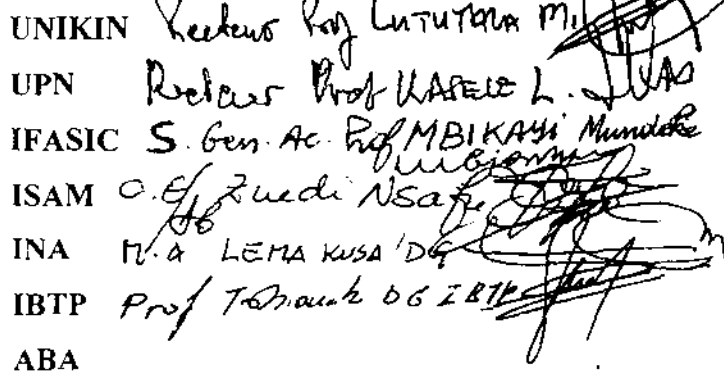 UNIKIN Recteur Prof LUTUTALA M.
UPN Recteur Prof KASELE L.
IFASIC S. Gen. Ac. Prof MBIKAYI Mundeke
ISAM Zuedi
INA LEMA KUSA DG
IBTP Prof DG IBTP
ABA